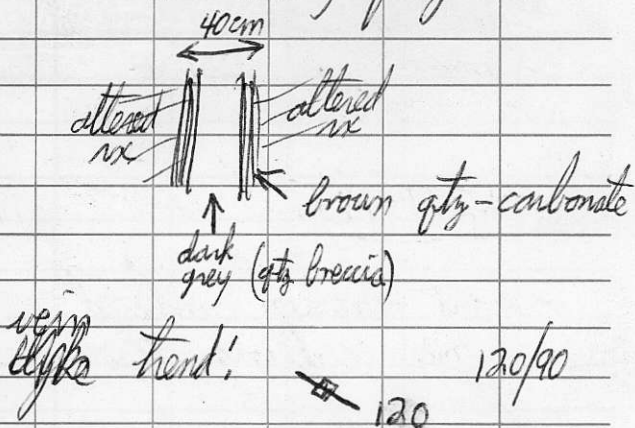 40cm
altered
rx
altered
rx
brown qtz-carbonate
dark
grey (qtz breccia)
vein
trend: 120/90
120